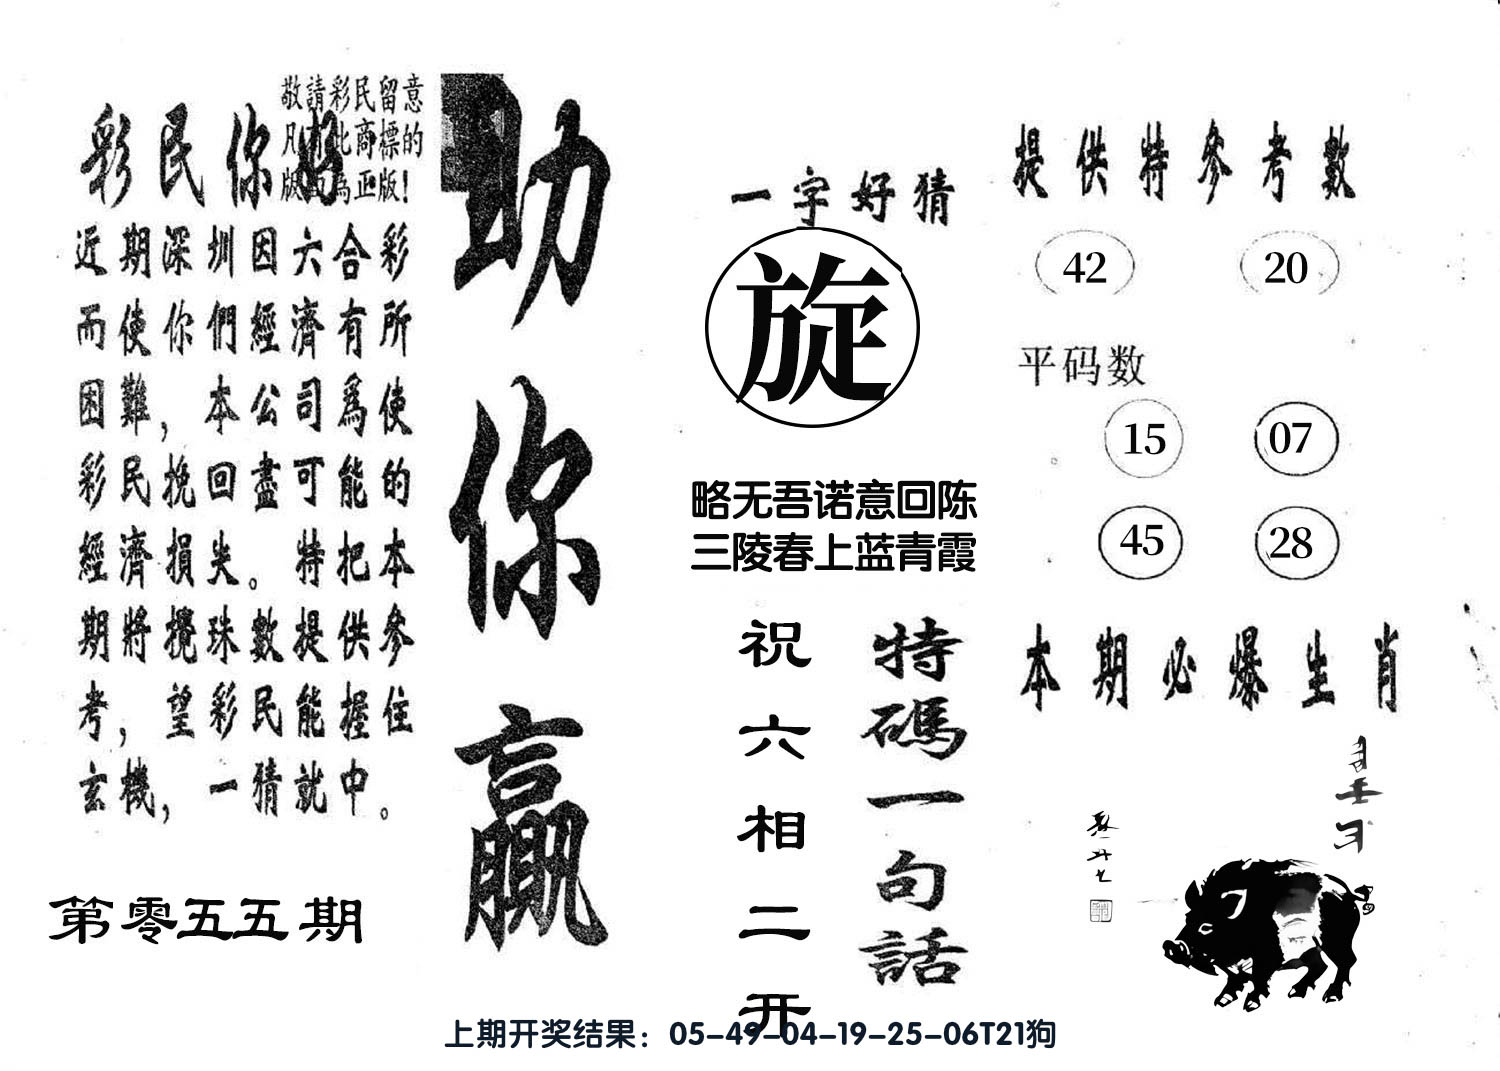 敬請彩民留意
凡有此商標的
版面為正版！
彩民你好
近期深圳因六合彩
而使你們經濟有所
困難，本公司爲使
彩民挽回盡可能的
經濟損失。特把本
期將攪珠數提供參
考，望彩民能握住
玄機，一猜就中。
第零五五期
助你贏
一字好猜
旋
略无吾诺意回陈
三陵春上蓝青霞
特碼一句話
祝六相二开
提供特參考數
42 20
平码数
15 07
45 28
本期必爆生肖
上期开奖结果：05-49-04-19-25-06T21狗